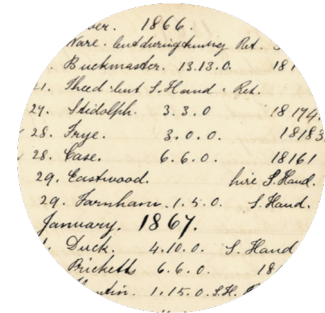 er. 1866.
Ware. lent during hurry Ret. S
Buckmaster. 13.13.0. 181
1. Sheed lent S. Hand. Ret.
27. Skidolph. 3.3.0 18174
28. Frye. 3.0.0. 18183
28. Case. 6.6.0. 18161
29. Eastwood. hire S. Hand.
29. Farnham. 1.5.0 S. Hand.
January. 1867.
Duck. 4.10.0. S. Hand
Prickett 6.6.0. 18
1.15.0. S.H.